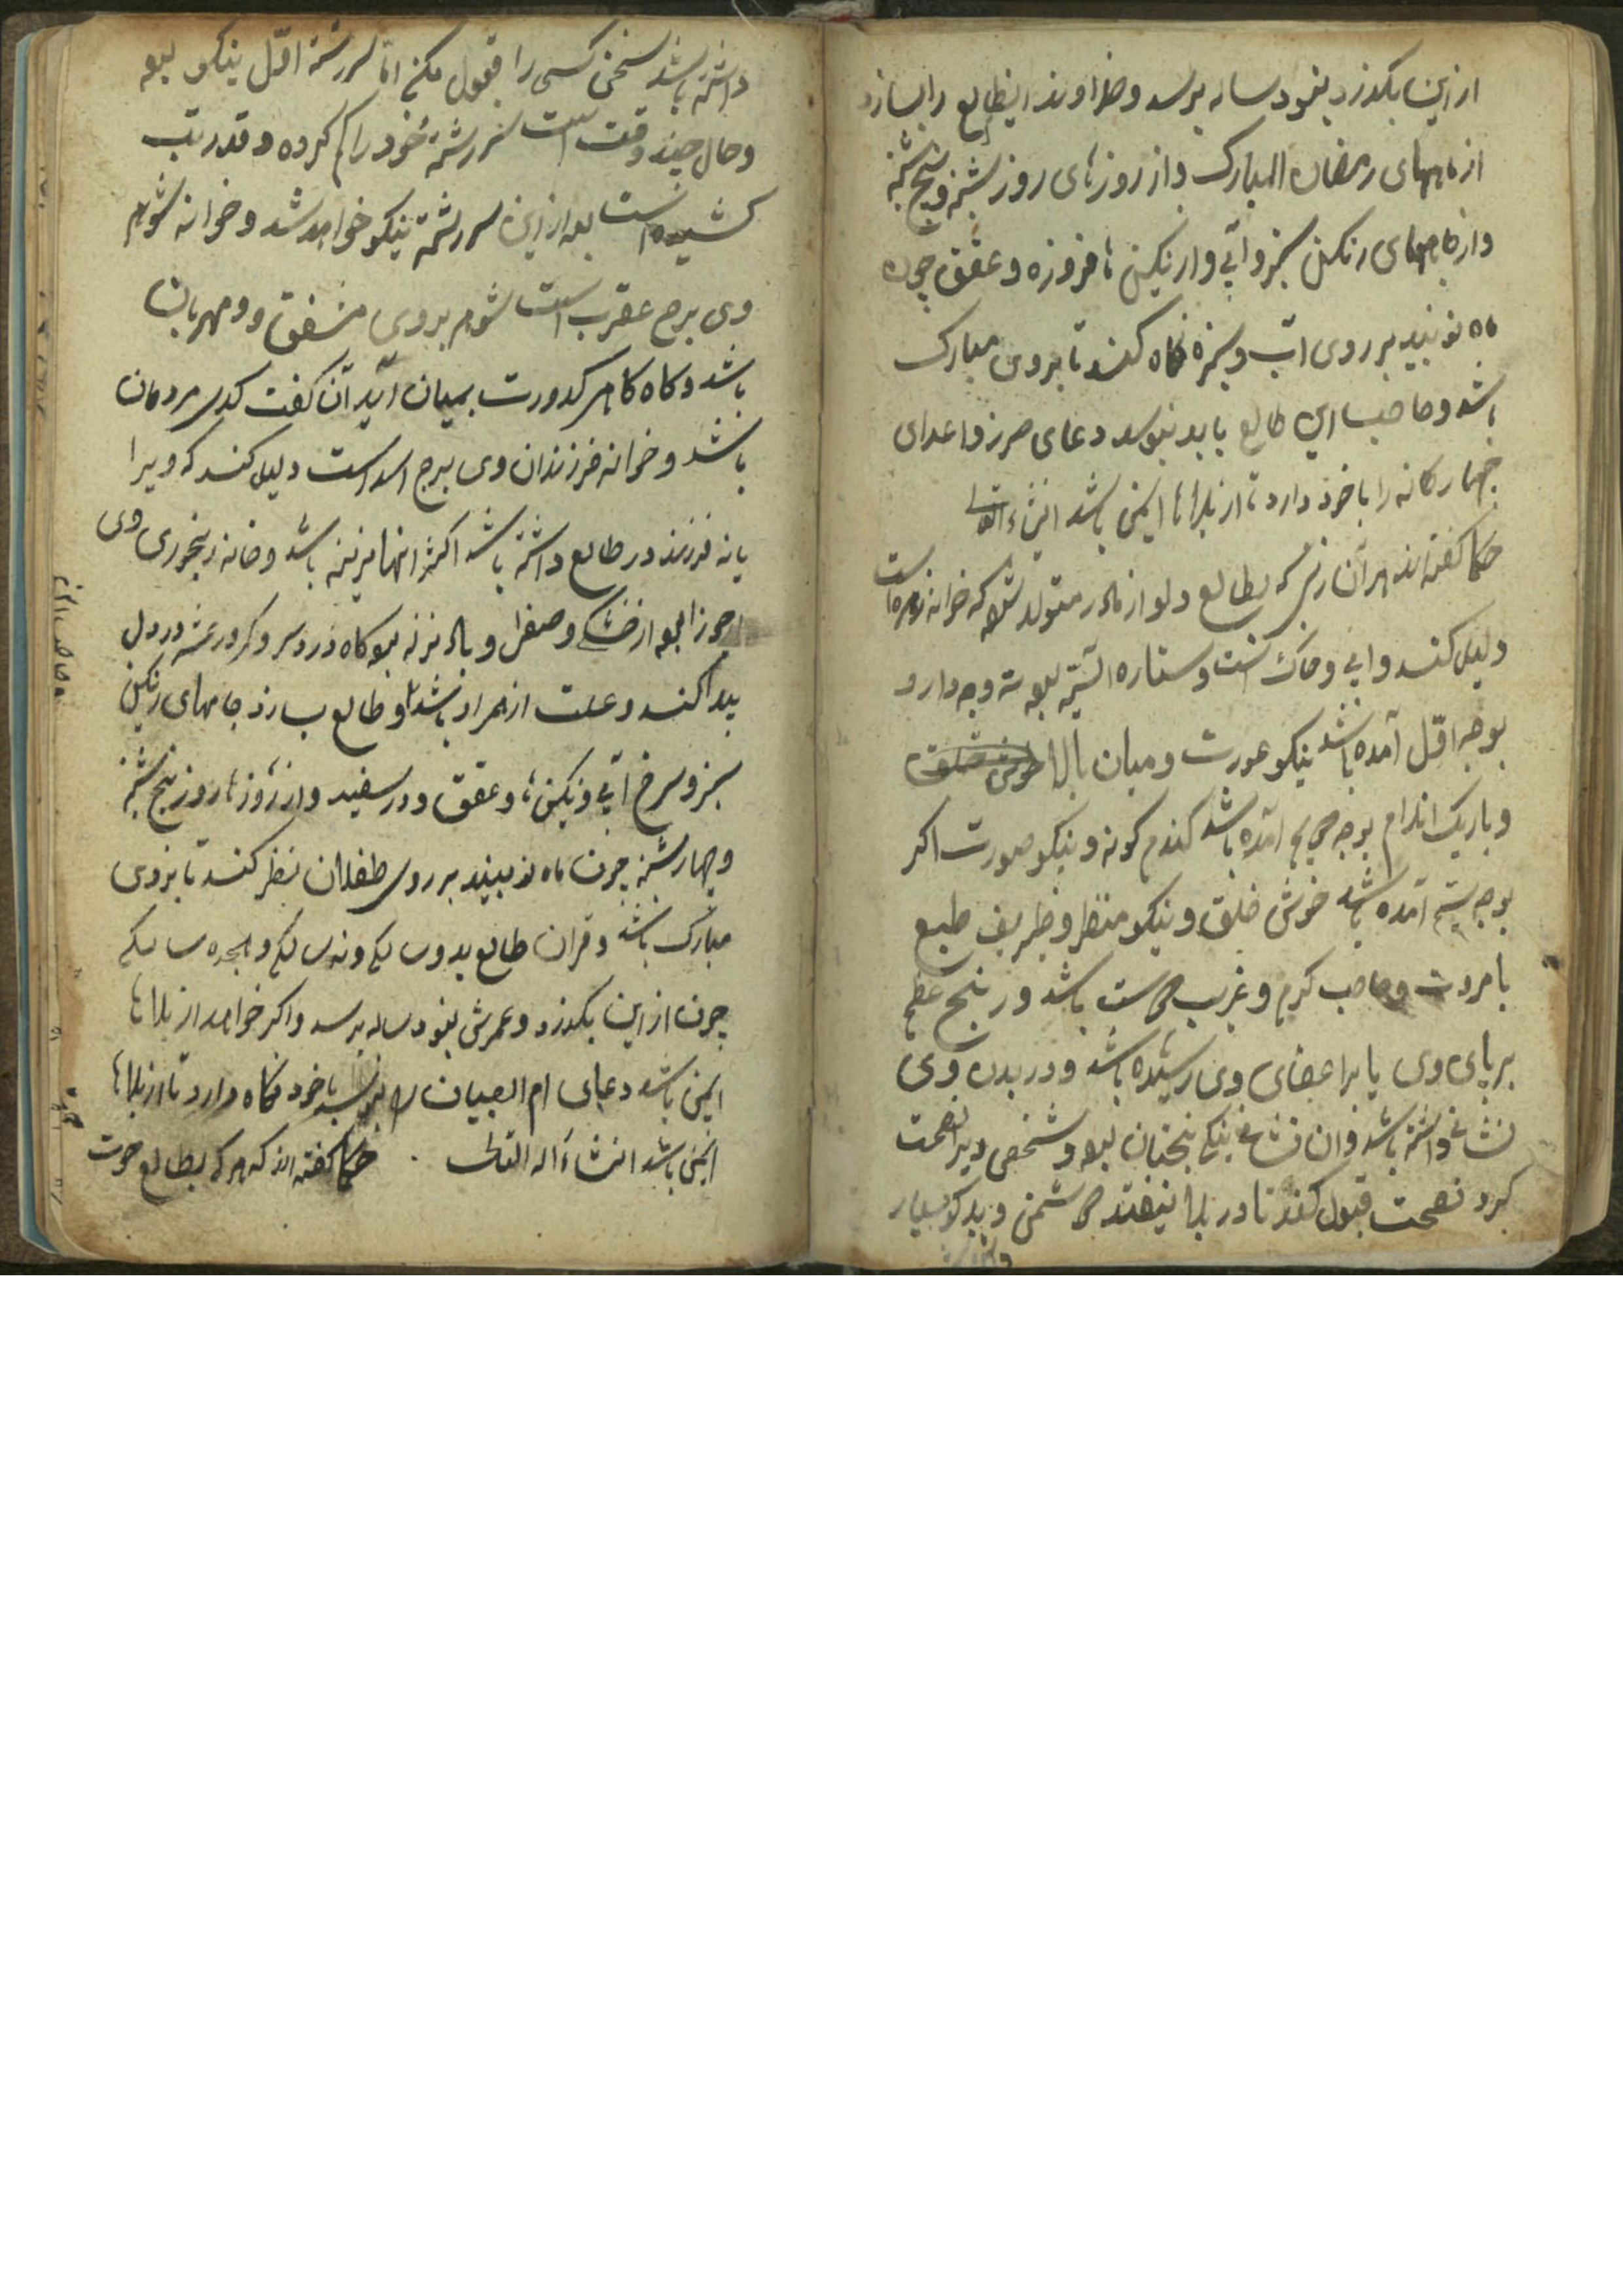 از این بگذرد بنود ساله برسد و خداوند اینطالع را بسازد
از ماههای رمضان المبارک و از روزهای روز شنبه و پنج شنبه
و از جامهای رنگین سبز و آبی و از نگین ها فروزه و عقیق چون
ماه نو بیند بر روی آب و سبزه نگاه کند تا بروی مبارک
باشد و صاحب این طالع باید بنویسد دعای حرز و اعدای
چهارگانه را با خود دارد تا از بلاها ایمن باشد انشاء الله
حکما گفته اند هر آن زنی که بطالع دلو از مادر متولد شود که خوانه زهره است
دلیل کند و ابی و خاک است و ستاره اش بود سه وجه دارد
بوجه اوّل آمده باشد نیکو عورت و میان بالا خوش خلق
و باریک اندام بوجه دویم آمده باشد گندم گونه و نیکو صورت اگر
بوجه سیّم آمده باشد خوش خلق و نیکو منظر و ظریف طبع
با مروت و صاحب کرم و غریب دوست باشد و رنج عظیم
بر پای وی یا بر اعضای وی رسیده باشد و در بدن وی
نشانی داشته باشد و ان نشان نیک بختان بود و شخصی ویرا نصحت
کرد نصحت قبول کند تا در بلا نیفتد دشمن و بدکو بسیار
داشته
داشته باشد سخن کسی را قبول مکن امّا سررشته اوّل نیکو بود
و حال چند وقت است سررشتهٔ خود را کم کرده و قدر تب
کشیده است بعد از این سررشته نیکو خواهد شد و خوانه شوهر
وی برج عقرب است شوهر بروی مشفق و و مهربان
باشد و گاه گاهی کدورت بمیان آید آن گفت کدی مردمان
باشد و خوانه فرزندان وی ببرج اسد است دلیل کند که ویرا
یا نه فرزند در طالع داشته باشد اکثر انها نرینه باشد و خانه رنجوری وی
جوزا بود از خشکی و صفرا و باد نزله بود گاه درد سر و کمر و رعشه در دل
پیدا کند و علت از همزاد باشد و طالع بسازد جامهای رنگین
سبز و سرخ آبی و نگین ها و عقیق و در سفید و از روزها روز پنج شنبه
و چهارشنبه چون ماه نو بیند بر روی طفلان نظر کند تا بروی
مبارک باشد و قران طالع بدو سالگی و نه سالگی و هجده سالگی
چون از این بگذرد و عمرش بنود ساله برسد و اگر خواهد از بلاها
ایمن باشد دعای ام الصبیان را بنویسد با خود نگاه دارد تا از بلاها
ایمن باشد انشاء اله التعالی . حکما گفته اند که هر که بطالع حوت